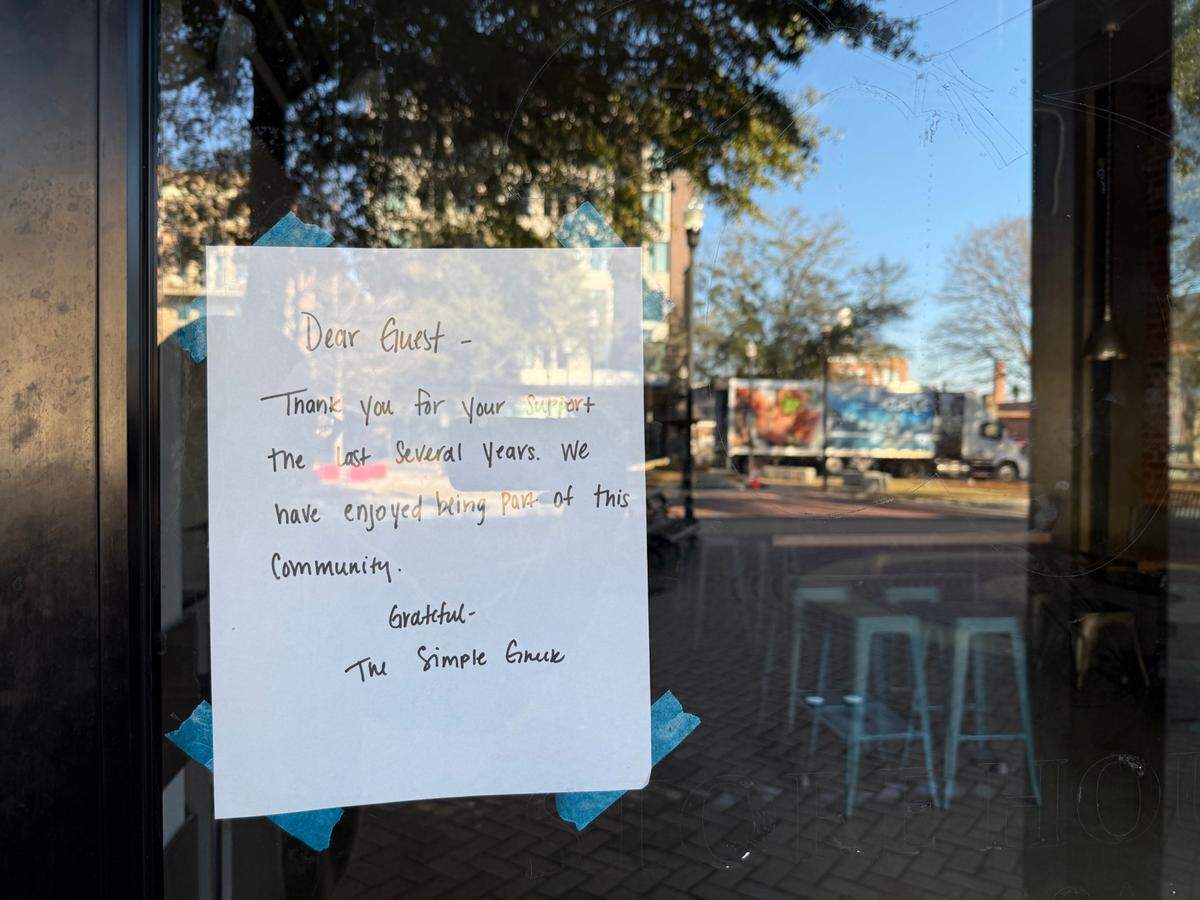 Dear Guest -
Thank you for your support
the last several years. We
have enjoyed being part of this
Community.
Grateful-
The Simple Greek